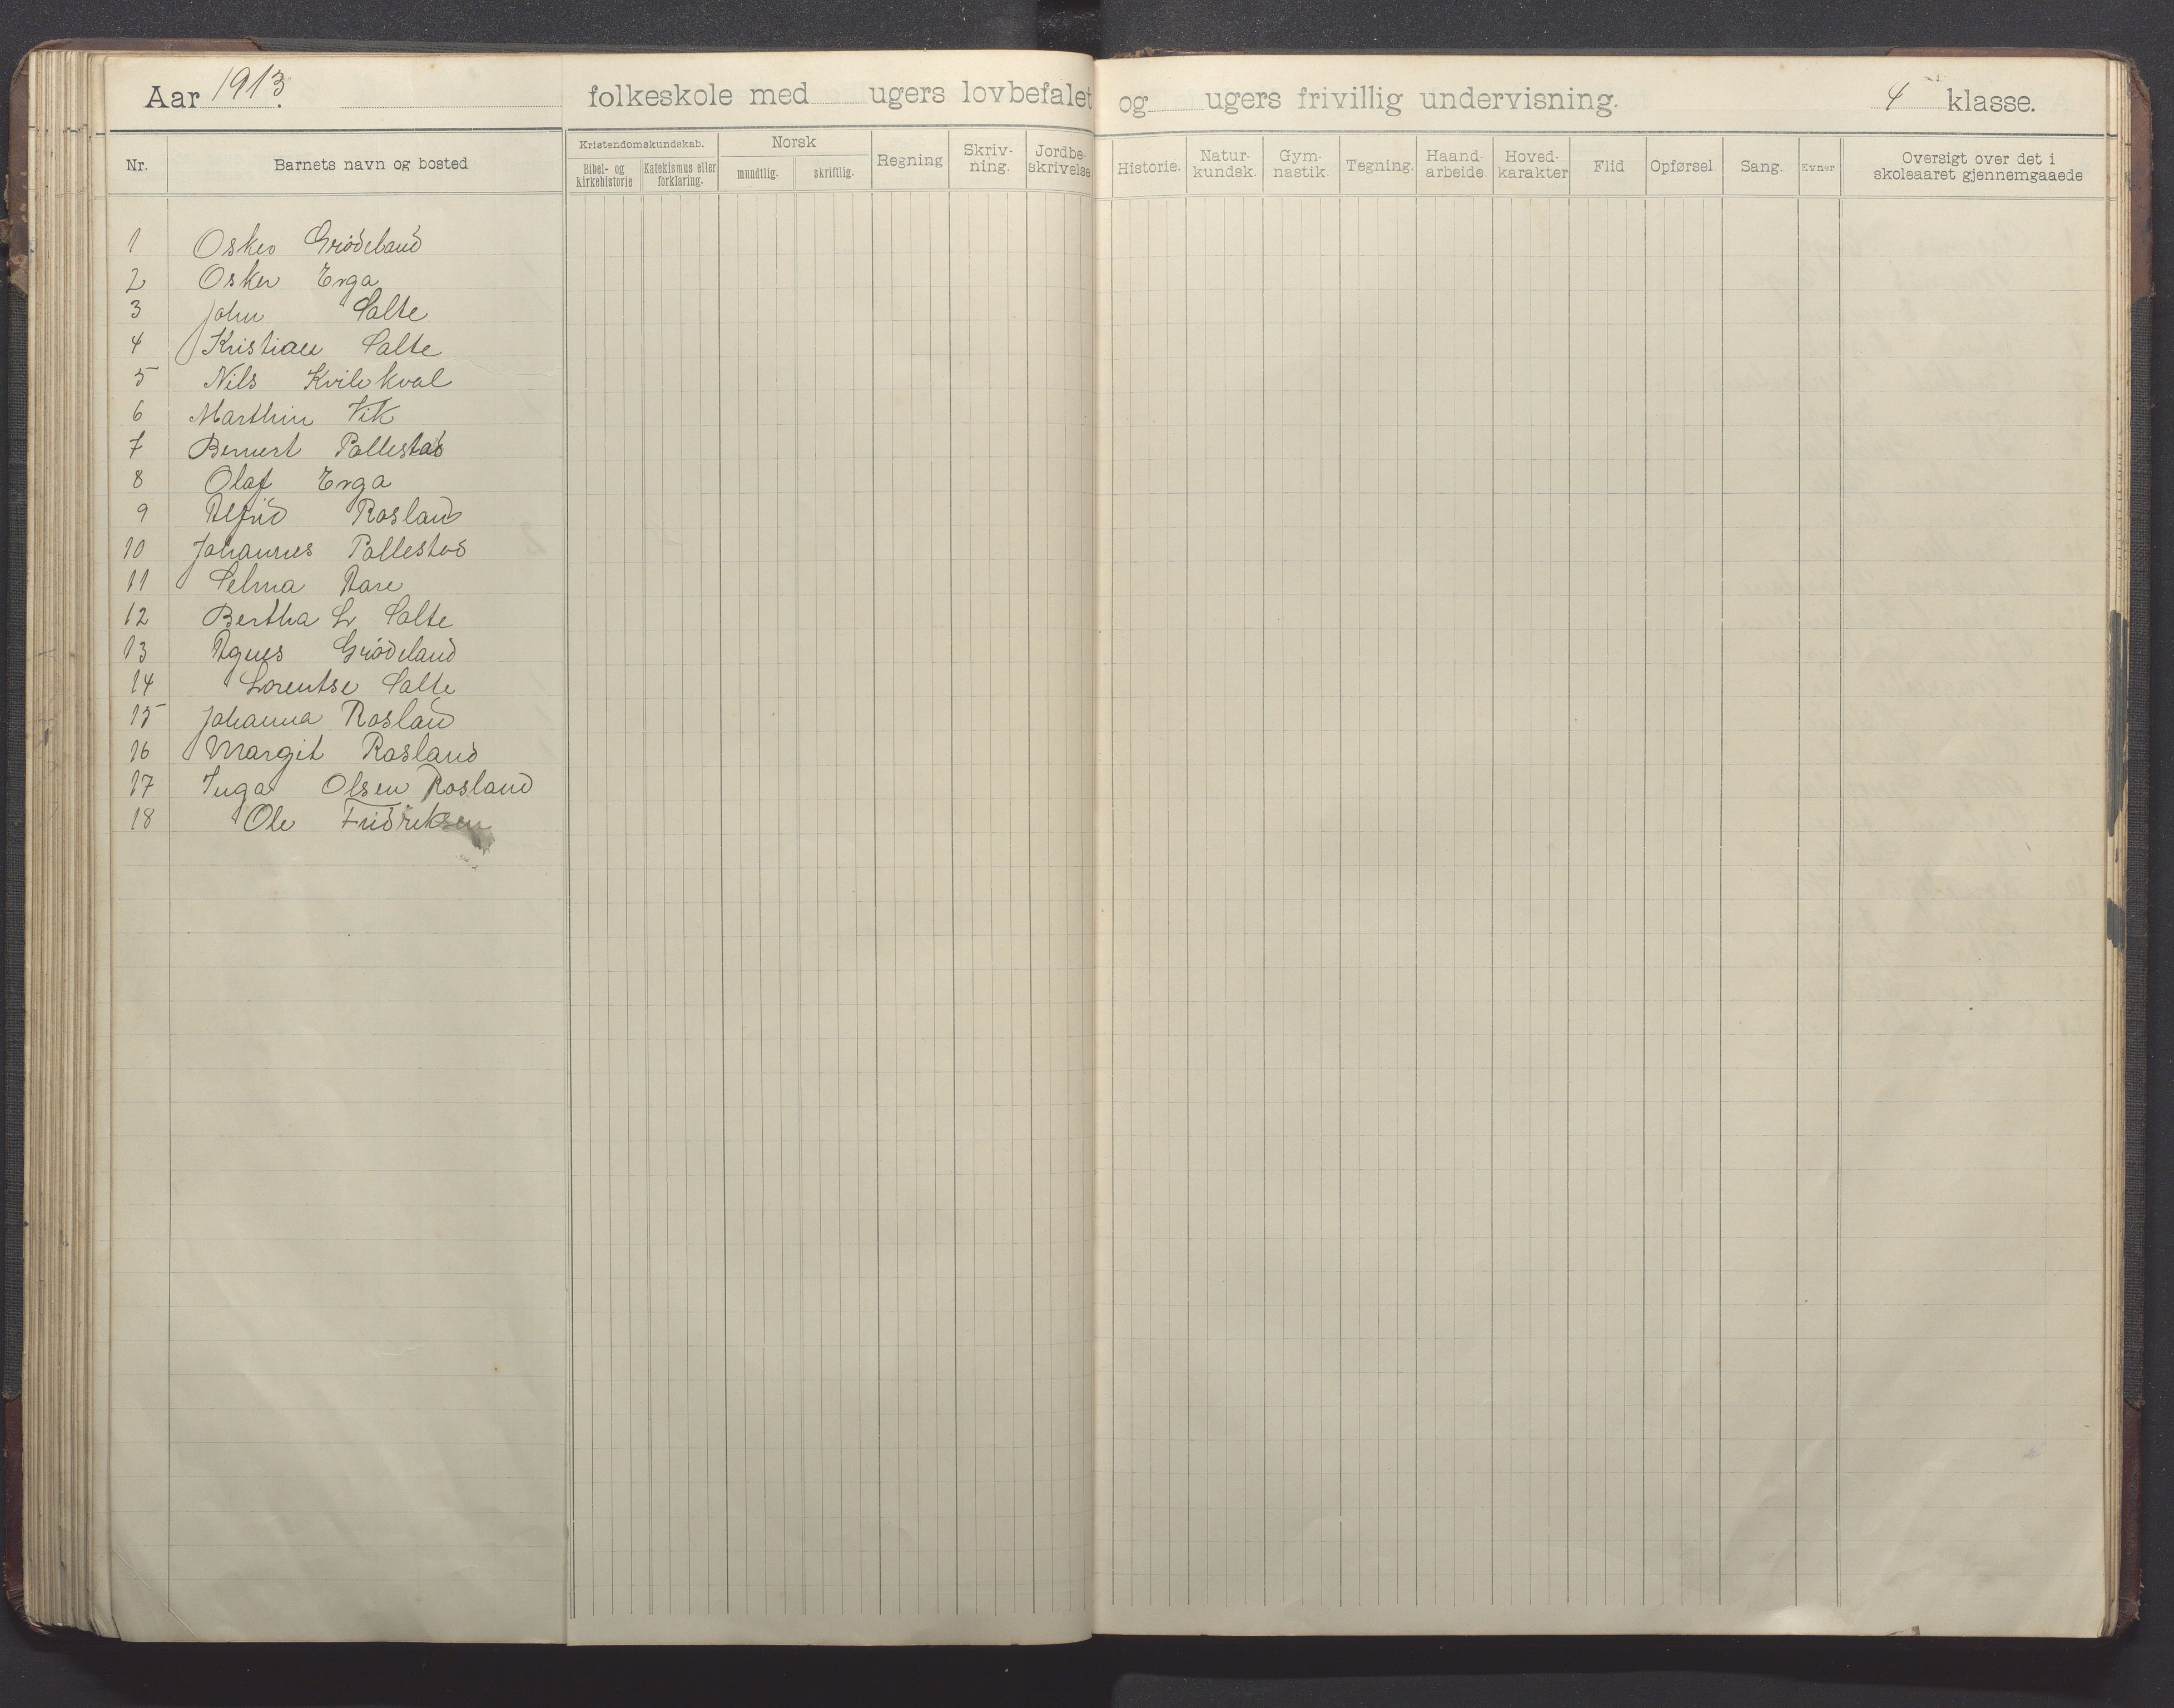 Aar 1913. folkeskole med ugers lovbefalet og ugers frivillig undervisning. 4 klasse.
Nr. Barnets navn og bosted Kristendomskundskab. Bibel- og kirkehistorie Katekismus eller forklaring. Norsk mundtlig. skriftlig. Regning Skriv-ning. Jordbe-skrivelse Historie. Natur-kundsk. Gym-nastik. Tegning. Haand-arbeide. Hoved-karakter Flid Opførsel. Sang. Evner Oversigt over det i skoleaaret gjennemgaaede
1 Osker Grødeland
2 Osker Erga
3 John Salte
4 Kristian Salte
5 Nils Kvilekval
6 Marthin Vik
7 Bernert Pollestad
8 Olaf Erga
9 Alfrid Rosland
10 Johannes Pollestad
11 Selma Aare
12 Bertha L Salte
13 Agnes Grødeland
14 Lorentse Salte
15 Johanna Rosland
16 Margit Rosland
17 Inga Olsen Rosland
18 Ole Fridriksen